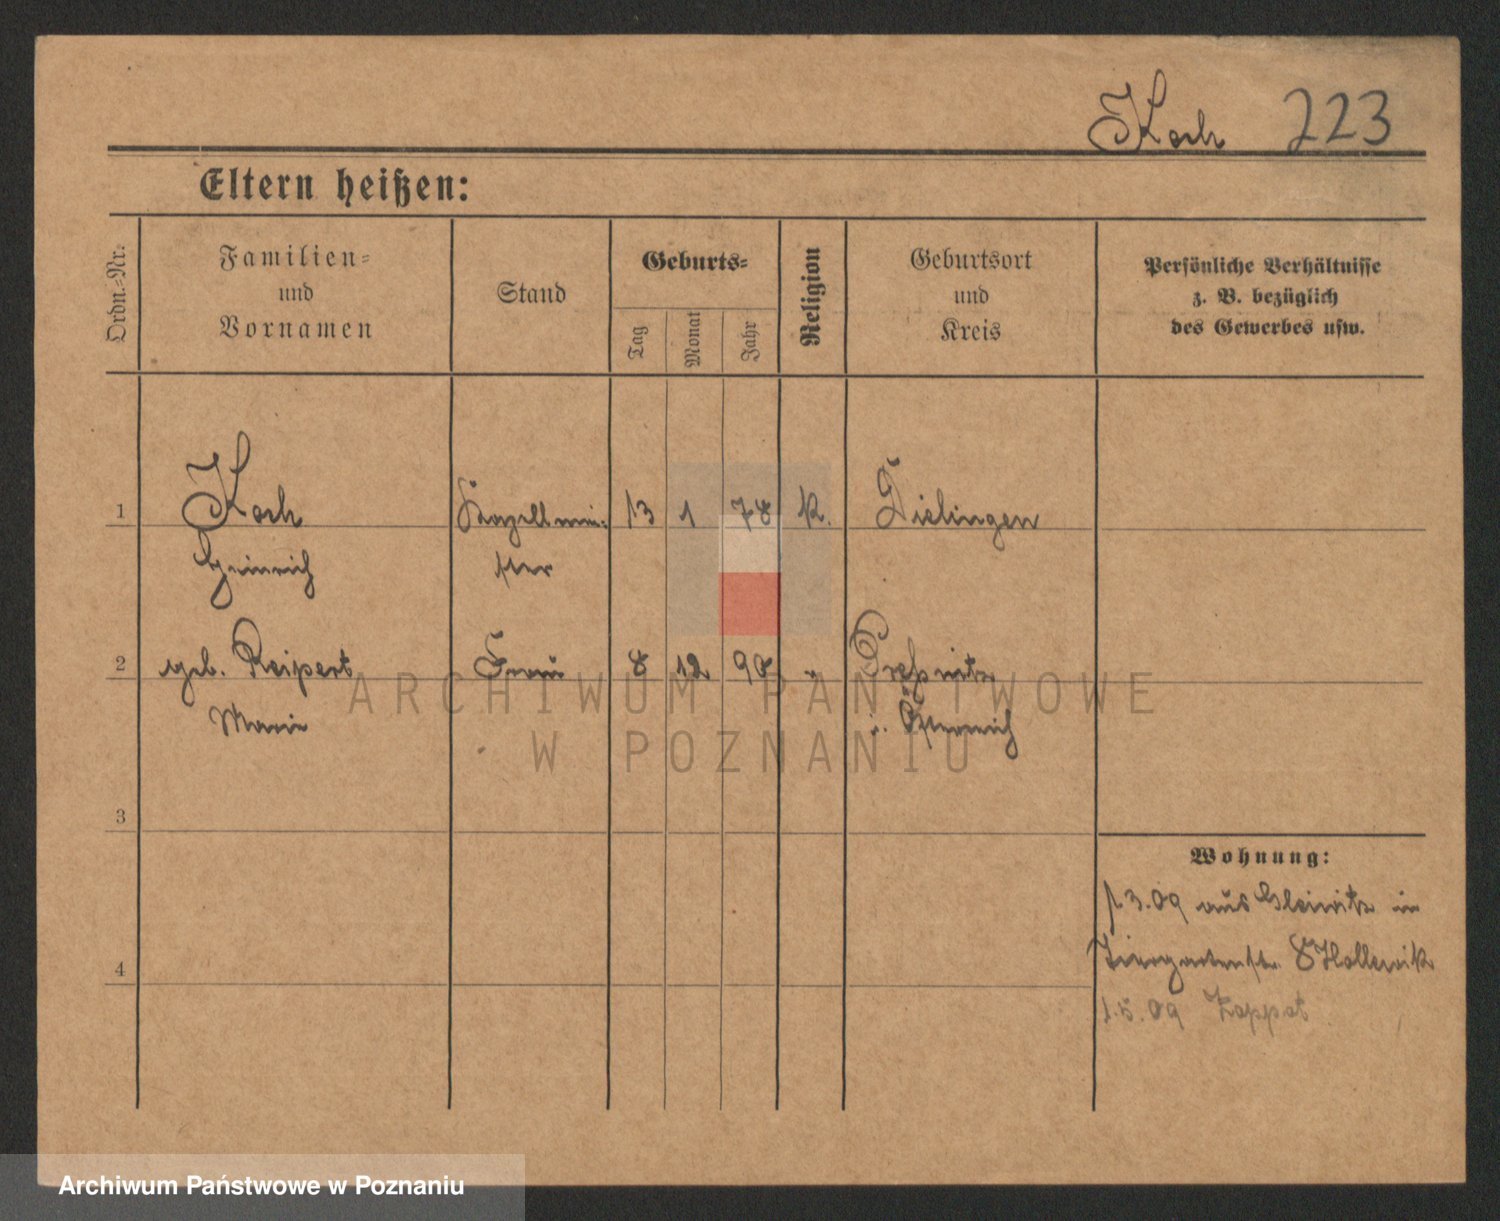 Koch 223
Eltern heißen:
Ordn.-Nr.
Familien-
und
Vornamen
Stand
Geburts-
Tag
Monat
Jahr
Religion
Geburtsort
und
Kreis
Persönliche Verhältnisse
z. B. bezüglich
des Gewerbes usw.
1 Koch Kapellmei- 13 1 78 k.
Heinrich ster
2 geb. Reipert Frau 8 12 " Preßnitz
Marie i. Österreich
3
4
Wohnung:
1 3. 09 aus Gleiwitz in
Tiergartenstr. 8
1. 5. 09 Zoppot
ARCHIWUM PAŃSTWOWE
W POZNANIU
Archiwum Państwowe w Poznaniu